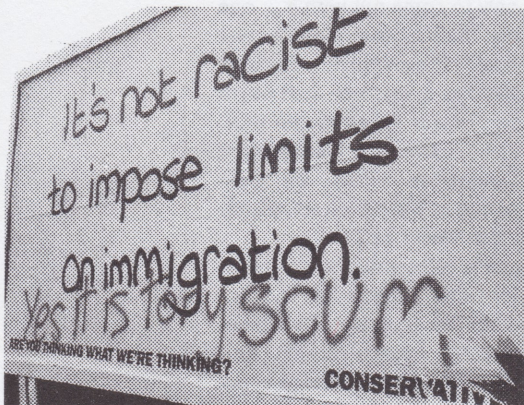 It's not racist
to impose limits
on immigration.
Yes IT IS TORY SCUM
ARE YOU THINKING WHAT WE'RE THINKING?
CONSERVATIV